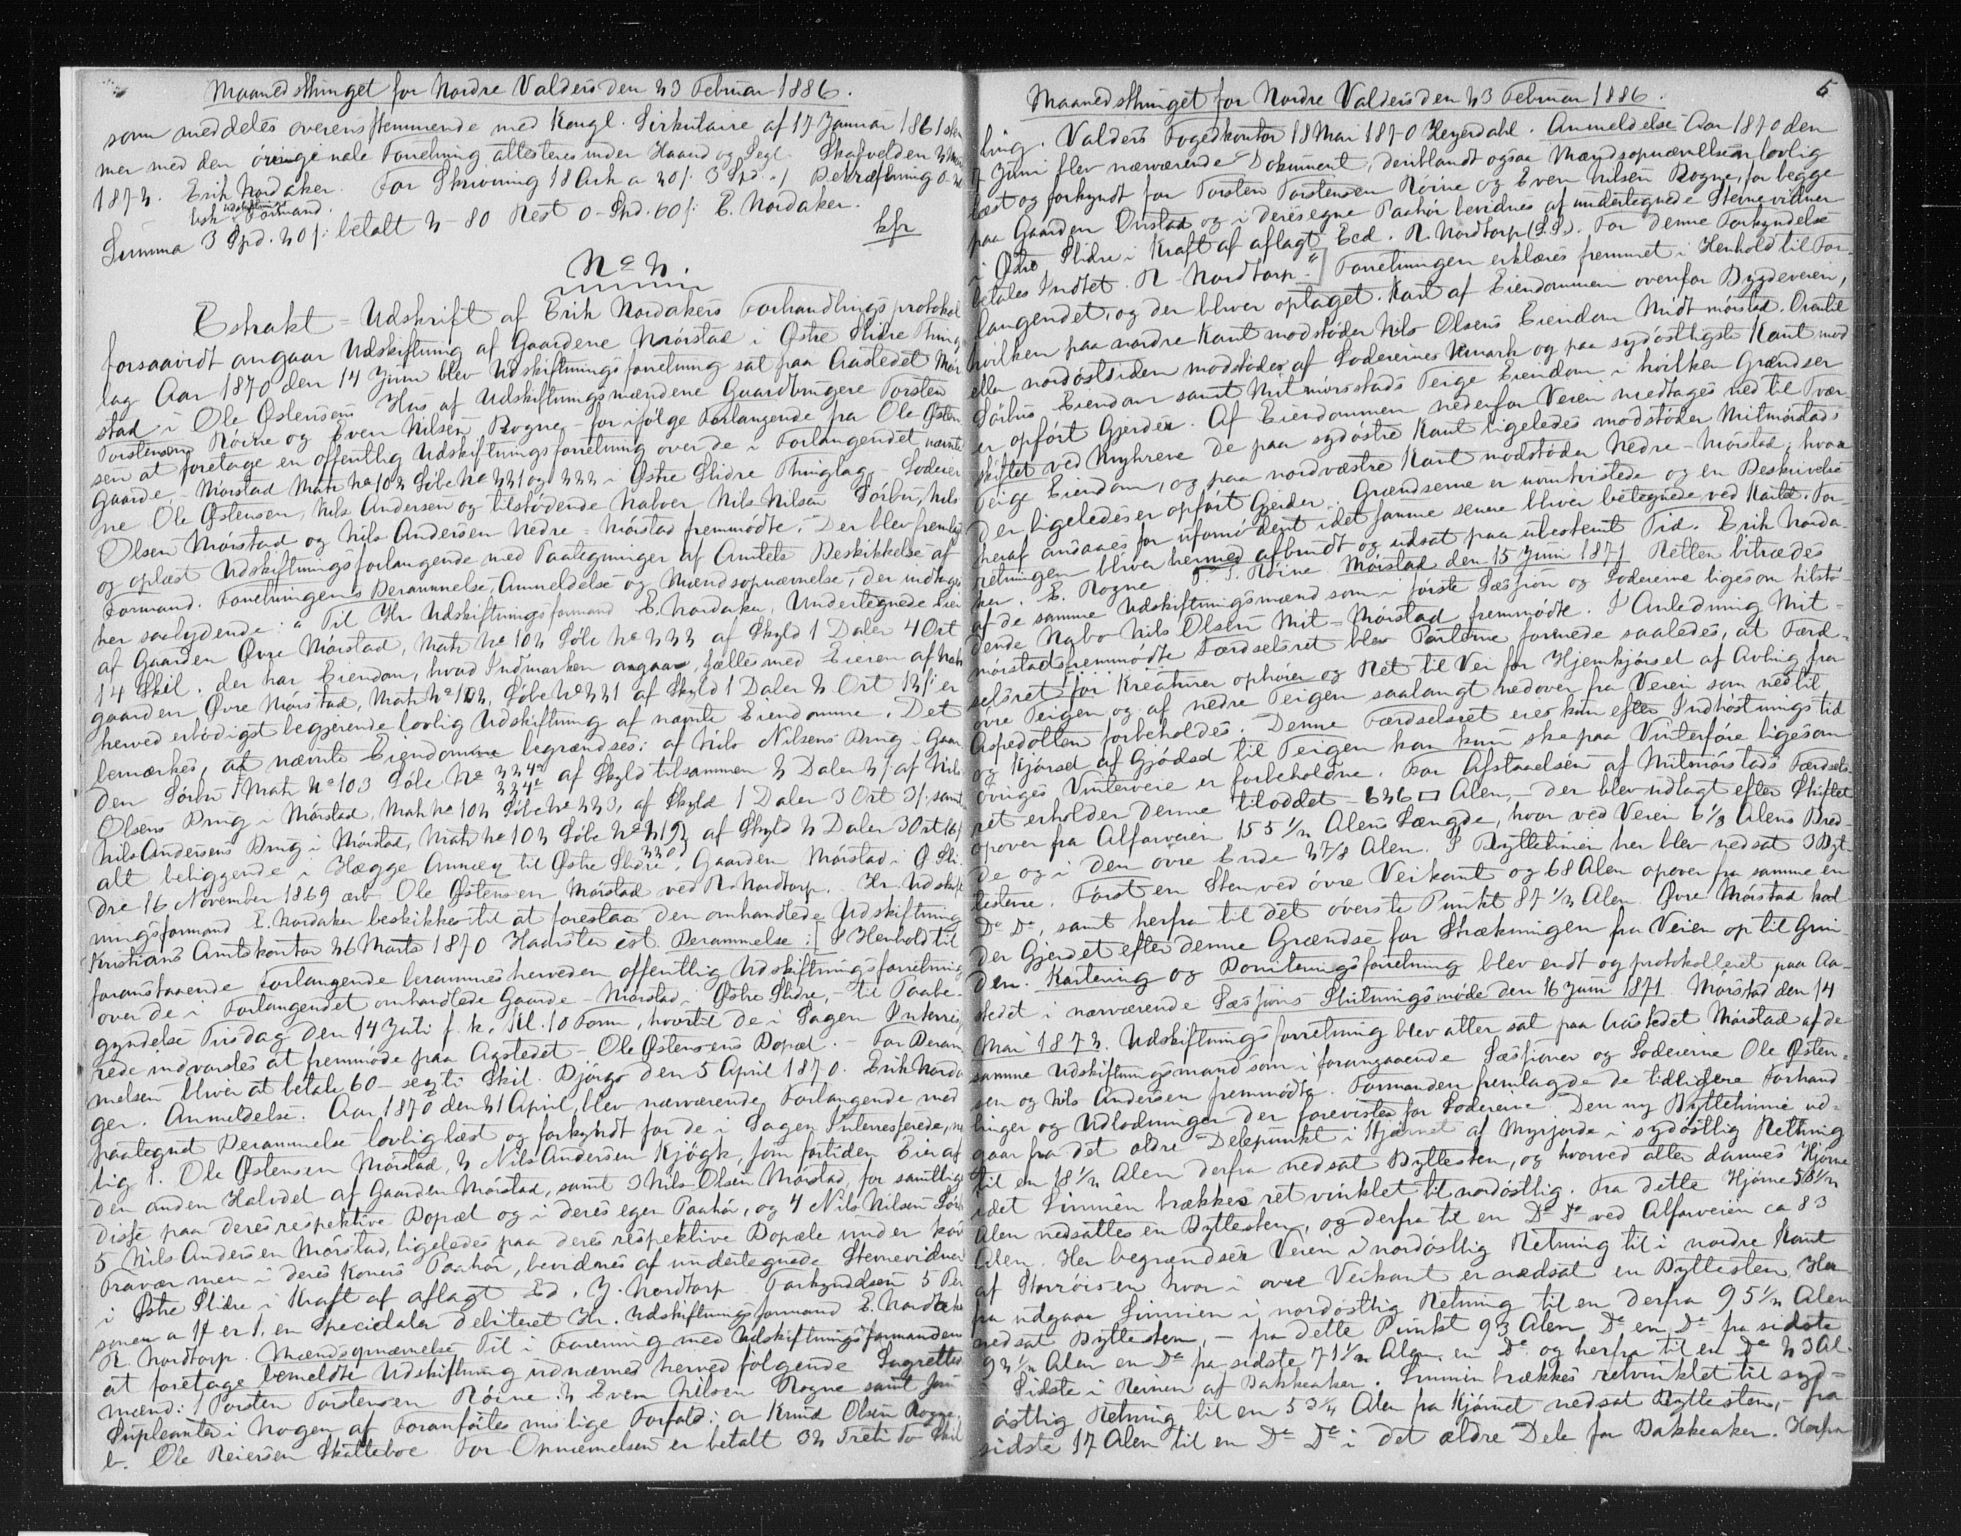 Maanedsthinget for Nordre Valders den 23 Februar 1886.
som meddeles overensstemmende med Kongl. Sirkulaire af 17 Januar 1861
mer med den originale Forretning attesteres under Haand og Segl. Skafvelden
1873. Erik Nordaker. For Skrivning 18 Ark a 20 s. 3 Spd. Bekræftning
Udskiftnings
Formand.
Summa 3 Spd. 20 s. betalt 2 - 80 Rest 0 - Spd. 60 s. E. Nordaker.
No 2.
Estrakt - Udskrift af Erik Nordakers Forhandlingsprotokol
forsaavidt angaar Udskiftning af Gaardene Mørstad i Østre Slidre Thing
lag Aar 1870 den 14 Juni blev Udskiftningsforretning sat paa Aastedet Mør
stad i Ole Østensens Hus af Udskiftningsmændene Gaardbrugere Torsten
Torstensen Røine og Even Nilsen Rogne - for ifølge Forlangende fra Ole Østen
sen at foretage en offentlig Udskiftningsforretning over de i Forlangendet nævnte
Gaarde - Mørstad Matr No 102 Løbe No 331 og 332 i Østre Slidre Thinglag. Lodeier
ne Ole Østensen, Nils Andersen og tilstødende Naboer Nils Nilsen Sørbu, Nils
Olsen Mørstad og Nils Andersen Nedre - Mørstad fremmødte. Der blev fremlagt
og oplæst Udskiftningsforlangende med Paategninger af Amtets Beskikkelse af
Formand. Forretningens Berammelse, Anmeldelse og Mændsopnævnelse, der indtages
her saalydende: "Til Hr Udskiftningsformand E. Nordaker. Undertegnede Eier
af Gaarden Øvre Mørstad, Matr No 102 Løbe No 332 af Skyld 1 Daler 4 Ort
14 Skil. der har Eiendom, hvad Indmarken angaar, fælles med Eieren af
gaarden Øvre Mørstad, Matr No 102, Løbe No 331 af Skyld 1 Daler 2 Ort 13 s. er
herved erbødigst begjerende lovlig Udskiftning af nævnte Eiendomme. Det
bemærkes, at nævnte Eiendomme begrændses: af Nils Nilsens Brug i Gaar
den Sørbu Matr No 103 Løbe No 334a 334c af Skyld tilsammen 2 Daler 2 s. af Nils
Olsens Brug i Mørstad, Matr No 102 Løbe No 333, af Skyld 1 Daler 3 Ort 3 s. samt
Nils Andersens Brug i Mørstad, Matr No 102 Løbe No af Skyld 2 Daler 3 Ort 16 s.
alt beliggende i Hægge Annæx til Østre Slidre. Gaarden Mørstad i Ø Sli
dre 16 November 1869 ærb. Ole Østensen Mørstad ved R. Nordtorp. Hr. Udskift
ningsformand E. Nordaker beskikkes til at forestaa den omhandlede Udskiftning
Kristians Amtskontor 26 Marts 1870 Haarstad cst. Berammelse: I Henhold til
foranstaaende Forlangende berammes herved en offentlig Udskiftningsforretning
over de i Forlangendet omhandlede Gaarde - Mørstad i Østre Slidre, - til Paabe
gyndelse Tirsdag den 14 Juli f. k., Kl. 10 Form, hvortil de i Sagen Interres
rede indvarsles at fremmøde paa Aastedet - Ole Østensens Bopæl. - For Beram
melsen bliver at betale 60 - sexti Skil. Bjørgo den 5 April 1870. Erik Norda
ger. Anmeldelse. Aar 1870 den 21 April, blev nærværende Forlangende med
paategnet Berammelse lovlig læst og forkyndt for de i Sagen Interresserede,
lig 1. Ole Østensen Mørstad, 2 Nils Andersen Kjøgk, som fortiden Eier af
den anden Halvdel af Gaarden Mørstad, samt 3 Nils Olsen Mørstad, for samtlige
disse paa deres respektive Bopæl og i deres egen Paahør, og 4 Nils Nilsen Sørbu
5 Nils Andersen Mørstad, ligeledes paa deres respektive Bopæle under
Fravær men i deres Koners Paahør, bevidnes af undertegnede Stevnevidner
i Østre Slidre i Kraft af aflagt Ed. J. Nordtorp. Forkyndelsen 5 Per
soner a er 1. en Speciedaler debiteret Hr. Udskiftningsformand E. Nordaker
R. Nordtorp Mændsopnævnelse Til i Forening med Udskiftningsformanden
at foretage bemeldte Udskiftning udnævnes herved følgende Lagrettes
mænd: 1 Torsten Torstensen Røine 2 Even Nilsen Rogne samt som
Supleanter i nogen af Foranførtes mulige Forfald: a Knud Olsen Rogne,
b. Ole Reiersen Skatteboe For Opnævnelsen er betalt 32 Treti To Skil
5
Maanedsthinget for Nordre Valders den 23 Februar 1886.
ling. Valders Fogedkontor 18 Mai 1870 Heyerdahl. Anmeldelse Aar 1870 den
7 Juni blev nærværende Dokument, deriblandt ogsaa Mændsopnævnelsen lovlig
læst og forkyndt for Torsten Torstensen Røine og Even Nilsen Rogne, for begge
paa Gaarden Ønstad og i deres egne Paahør bevidnes af undertegnede Stevnevidner
i Østre Slidre i Kraft af aflagt Eed. R. Nordtorp (L.S.). For denne Forkyndelse
betales Indtet. R. Nordtorp." Forretningen erklæres fremmet i Henhold til For-
langendet, og der bliver optaget Kart af Eiendommen ovenfor Bygdeveien,
hvilken paa nordre Kant modstøder Nils Olsens Eiendom Midtmørstad. Ovantil
eller nordøstsiden modstødes af Lodeiernes Utmark og paa sydøstligste Kant mod
Sørbus Eiendom samt Mitmørstads Teige Eiendom i hvilken Grændser
er opført Gjerder. Af Eiendommen nedenfor Veien medtages ned til Tvær-
skiftet ved Myhreve de paa sydøstre Kant ligeledes modstøder Mitmørstads
Teige Eiendom, og paa nordvæstre Kant modstøder Nedre - Mørstad; hvor
der ligeledes er opført Gjerder. Grændserne er uomtvistede og en Beskrivelse
heraf ansaaes for ufornødent idet samme senere bliver betegnede ved Kartet. For
retningen bliver hermed afbrudt og udsat paa ubestemt Tid. Erik Norda-
ker. E. Rogne T. T. Røine. Mørstad den 15 Juni 1871 Retten bitrædes
af de samme Udskiftningsmænd som i første Sæssjon og Lodeierne ligesom tilstø
dende Nabo Nils Olsen Mit - Mørstad fremmødte. I Anledning Mit-
mørstads fremmødte Færdselsret blev Parterne forenede saaledes, at Færd-
selsret for Kreaturer ophører og Ret til Vei for Hjemkjørsel af Avling fra
øvre Teigen og af nedre Teigen saalangt nedover fra Veien som ned til
Aspedotten forbeholdes. Denne Færdselsret eies kun efter Indhøstningstid
og Kjørsel af Gjødsel til Teigen kan kun ske paa Vinterføre ligesom
øvriges Vinterveie er forbeholdne. For Afstaaelsen af Mitmørstads Færdsels-
ret erholder denne tiloddet - 636 □ Alen, - der blev udlagt efter Skiftet
opover fra Alfarveien 155 1/2 Alens Længde, hvor ved Veien 6 1/3 Alens Bred-
de og i den øvre Ende 2 7/8 Alen. I Byttelinien her blev nedsat 3 Byt-
testene. Først en Sten ved øvre Veikant og 68 Alen opover fra samme en
Do Do, samt herfra til det øverste Punkt 87 1/2 Alen. Øvre Mørstad hol
der Gjerdet efter denne Grændse for Strækningen fra Veien op til Grin
den. Kartering og Boniteringsforretning blev endt og protokolleret paa Aa-
stedet i nærværende Sæssjons Slutningsmøde den 16 Juni 1871 Mørstad den 14
Mai 1873. Udskiftningsforretning blev atter sat paa Aastedet Mørstad af de
samme Udskiftningsmænd som i forangaaende Sæssjoner og Lodeierne Ole Østen-
sen og Nils Andersen fremmødte. Formanden fremlagde de tidligere Forhand
linger og Udlodninger der forevistes for Lodeierne. Den ny Byttelinie ud-
gaar fra det ældre Delepunkt i Hjørnet af Myrjorde i sydøstlig Retning
til en 18 1/2 Alen derfra nedsat Byttesten, og hvorved atter dannes Hjørne
idet Linnien brækkes ret vinklet til nordøstlig. Fra dette Hjørne 58 1/2
Alen nedsattes en Byttesten, og derfra til en Do Do ved Alfarveien ca 83
Alen. Her begrændser Veien i nordøstlig Retning til i nordre Kant
af Storrøisen hvor i øvre Veikant er nedsat en Byttesten Her
fra udgaar Linnien i nordøstlig Retning til en derfra 95 1/2 Alen
nedsat Byttesten, - fra dette Punkt 93 Alen Do en Do fra sidste
93 1/2 Alen en Do fra sidste 71 1/2 Alen, en Do og herfra til en Do 23 Al.
Sidste i Reinen af Bakkeaker. Linnien brækkes retvinklet til syd-
østlig Retning til en 53 1/4 Alen fra Hjørnet nedsat Byttesten, - fra
sidste 17 Alen til en Do Do i det ældre Dele for Bakkeaker. Herfra